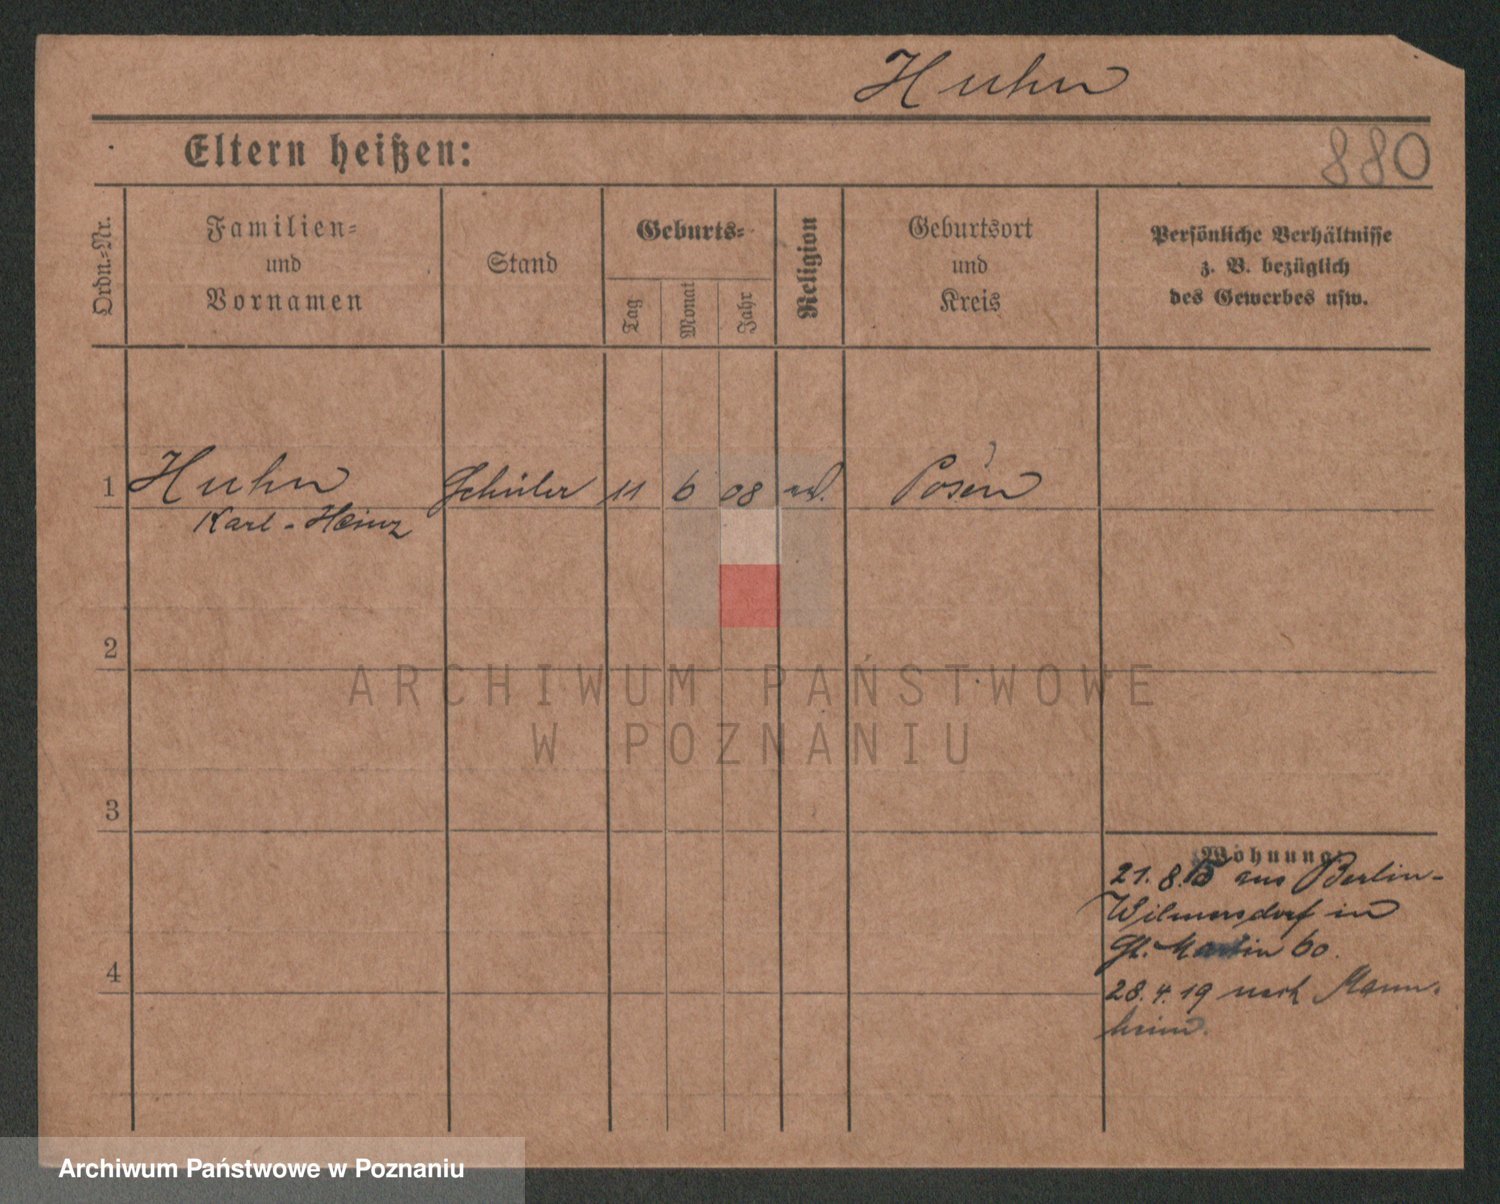 Huhn
Eltern heißen:
880
Ordn.-Nr.
Familien-
und
Vornamen
Stand
Geburts-
Tag
Monat
Jahr
Religion
Geburtsort
und
Kreis
Persönliche Verhältnisse
z. B. bezüglich
des Gewerbes usw.
1 Huhn Schüler 11 6 08 Posen
Karl-Heinz
2
ARCHIWUM PAŃSTWOWE
W POZNANIU
3
Wohnung:
21. 8. 15 aus Berlin-
Wilmersdorf in
St. Martin 60.
4
28. 4. 19 nach Mann-
heim.
Archiwum Państwowe w Poznaniu